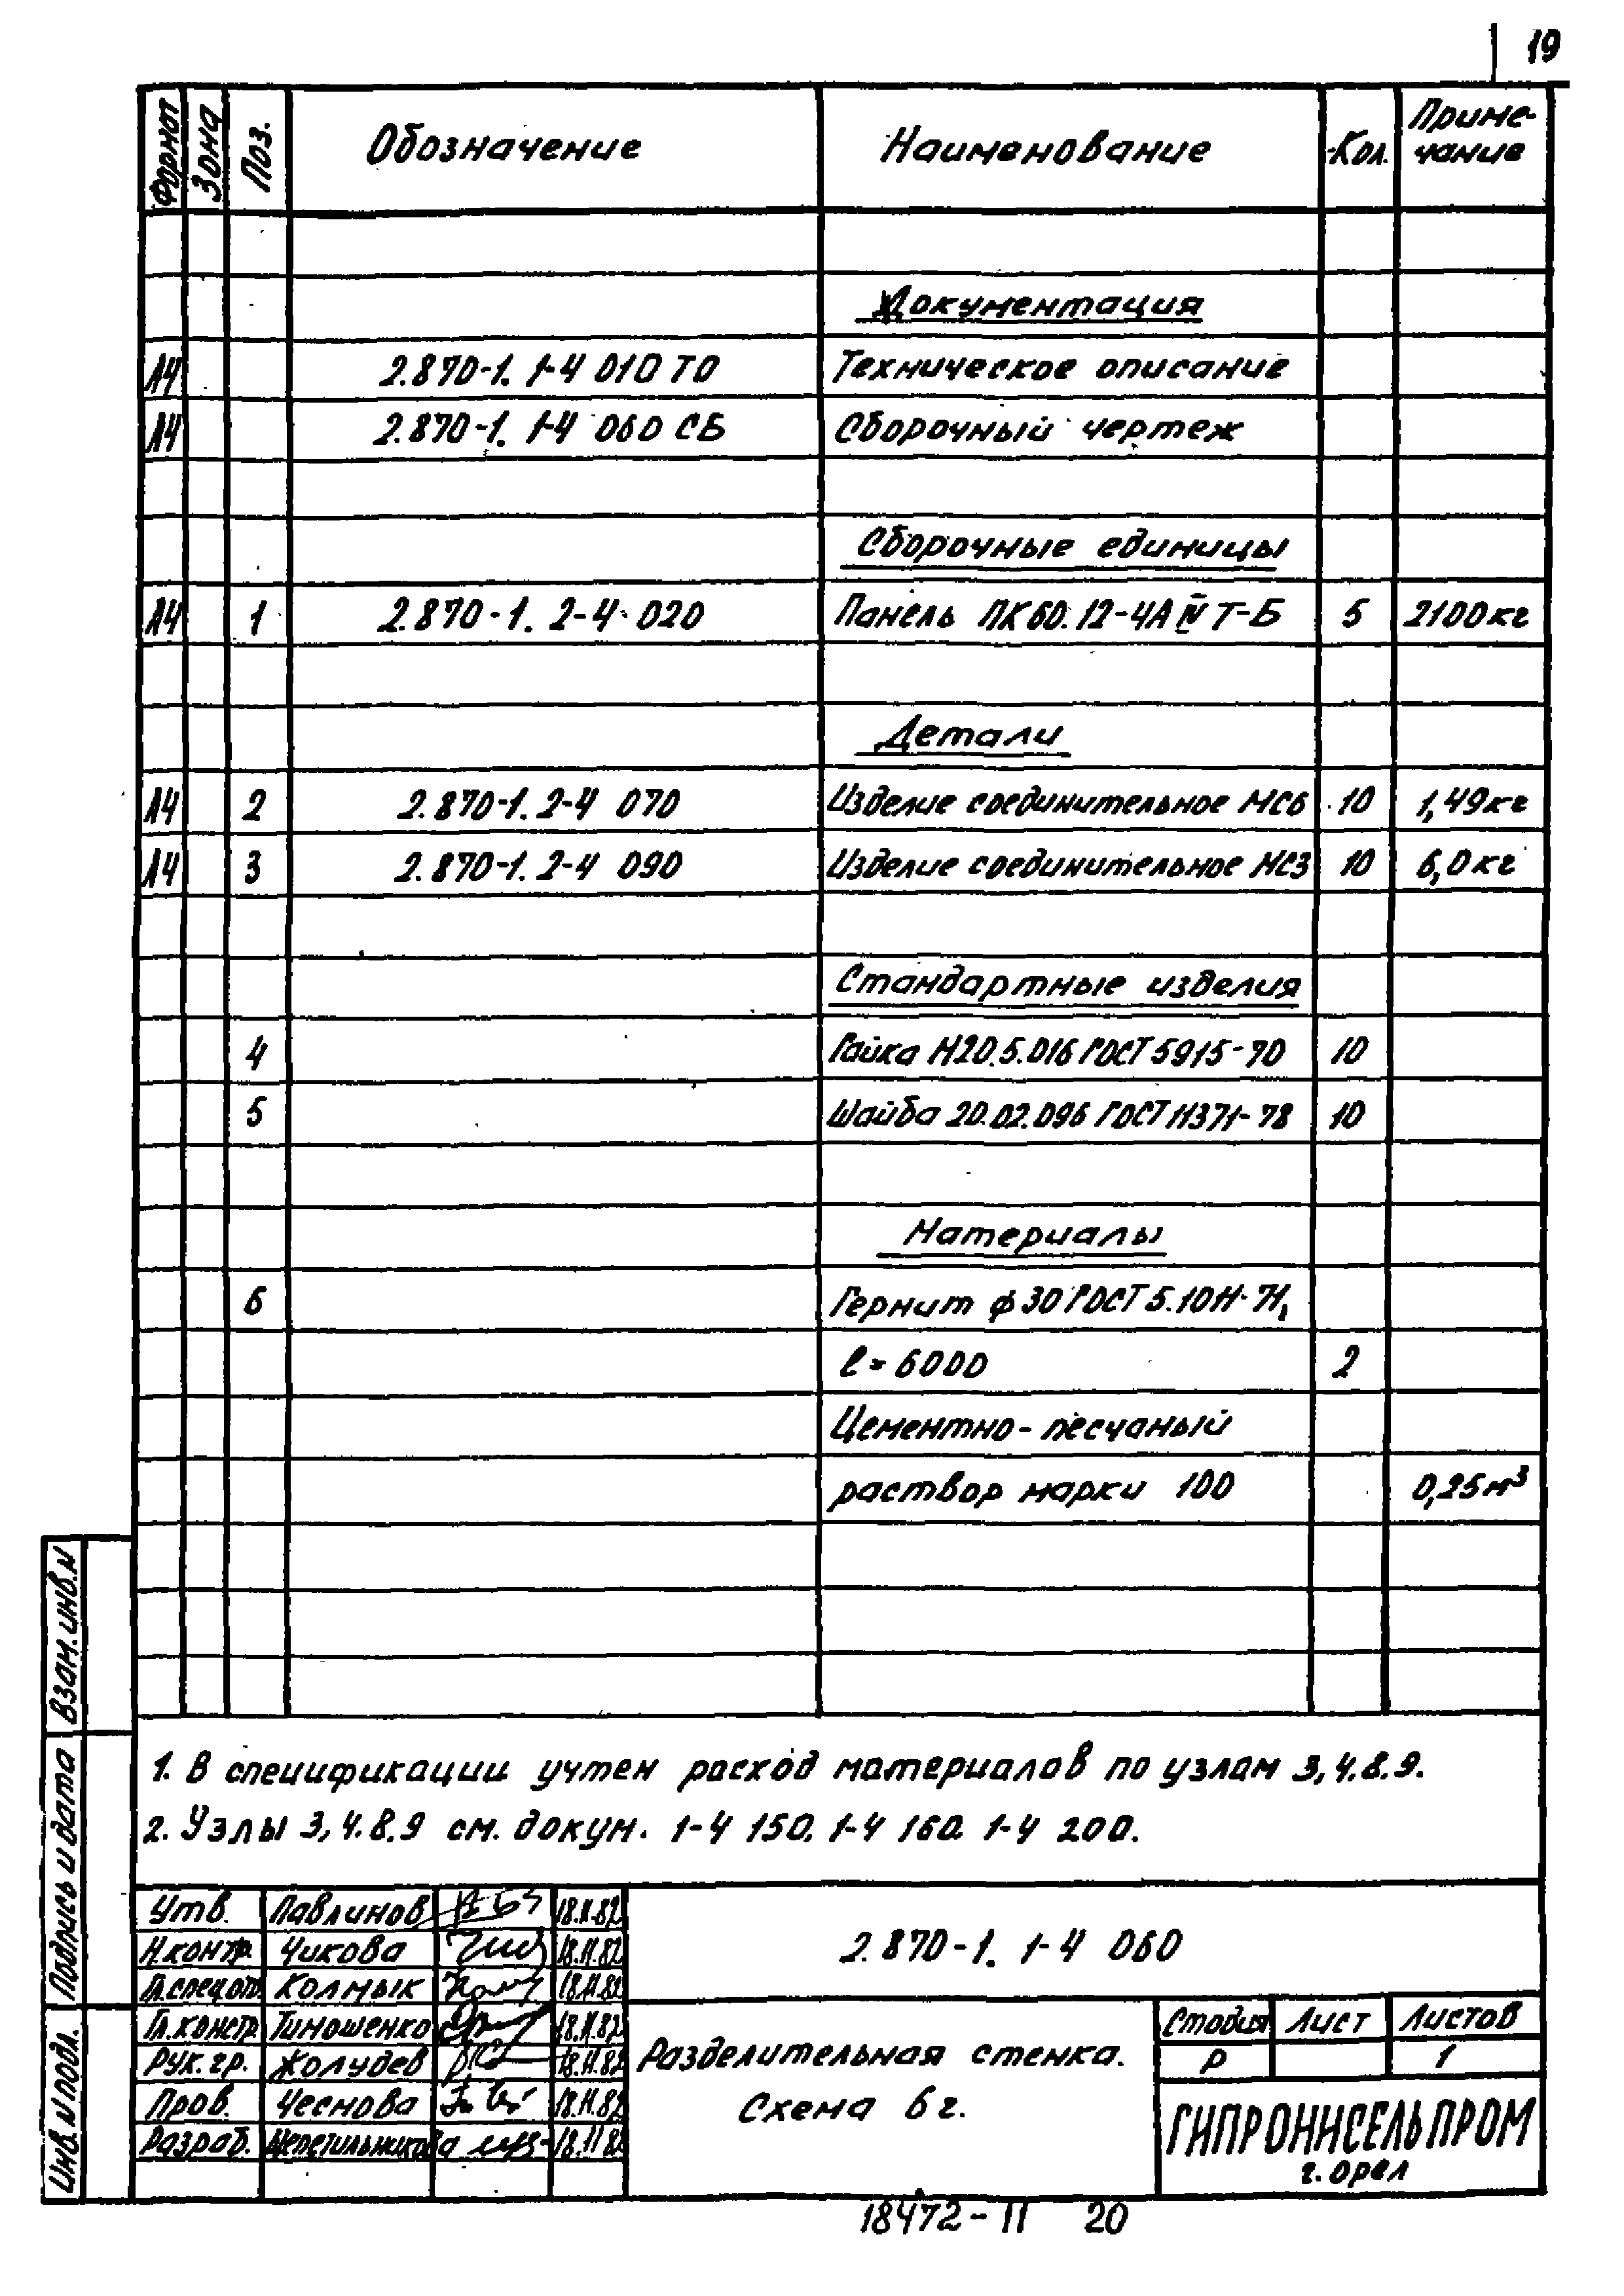 19
Формат Зона Поз. Обозначение Наименование Кол. Приме-
чание
Документация
А4 2.870-1. 1-4 010 ТО Техническое описание
А4 2.870-1. 1-4 060 СБ Сборочный чертеж
Сборочные единицы
А4 1 2.870-1. 2-4 020 Панель ПК60.12-4АIVТ-Б 5 2100кг
Детали
А4 2 2.870-1. 2-4 070 Изделие соединительное МС6 10 1,49кг
А4 3 2.870-1. 2-4 090 Изделие соединительное МС3 10 6,0кг
Стандартные изделия
4 Гайка М20.5.016 ГОСТ 5915-70 10
5 Шайба 20.02.096 ГОСТ 11371-78 10
Материалы
6 Гернит ф30 ГОСТ 5.1011-71,
l=6000 2
Цементно-песчаный
раствор марки 100 0,25м³
1. В спецификации учтен расход материалов по узлам 3,4.8.9.
2. Узлы 3,4.8.9 см. докум. 1-4 150. 1-4 160. 1-4 200.
Взам.инв.N
Подпись и дата
Инв.N подл.
Утв. Павлинов 18.11.82
Н.контр. Чикова 18.11.82
Гл.спец.от. Колмык 18.11.82
Гл.констр. Тимошенко 18.11.82
Рук.гр. Жолудев 18.11.82
Пров. Чеснова 18.11.82
Разраб. 18.11.82
2.870-1. 1-4 060
Разделительная стенка.
Схема 6г.
Стадия Лист Листов
Р 1
ГИПРОНИСЕЛЬПРОМ
г.Орел
18472-11 20